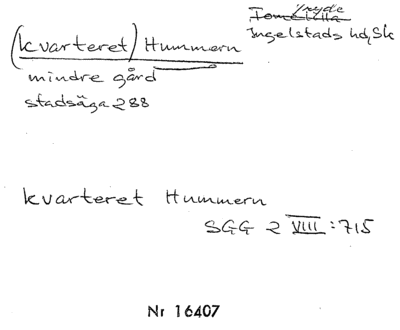 (kvarteret) Hummern
mindre gård
stadsäga 288
Ingelstads hd, Sk
kvarteret Hummern
SGG 2 VIII:715
Nr 16407